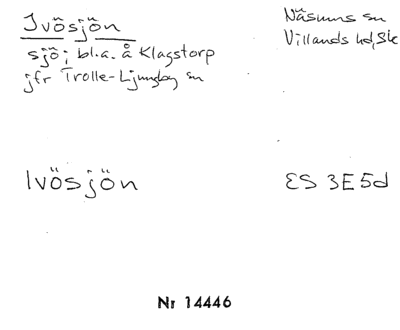 Ivösjön
Näsums sn
sjö; bl.a. å Klagstorp
Villands hd, Sk
jfr Trolle-Ljungby sn
Ivösjön
ES 3E5d
Nr 14446